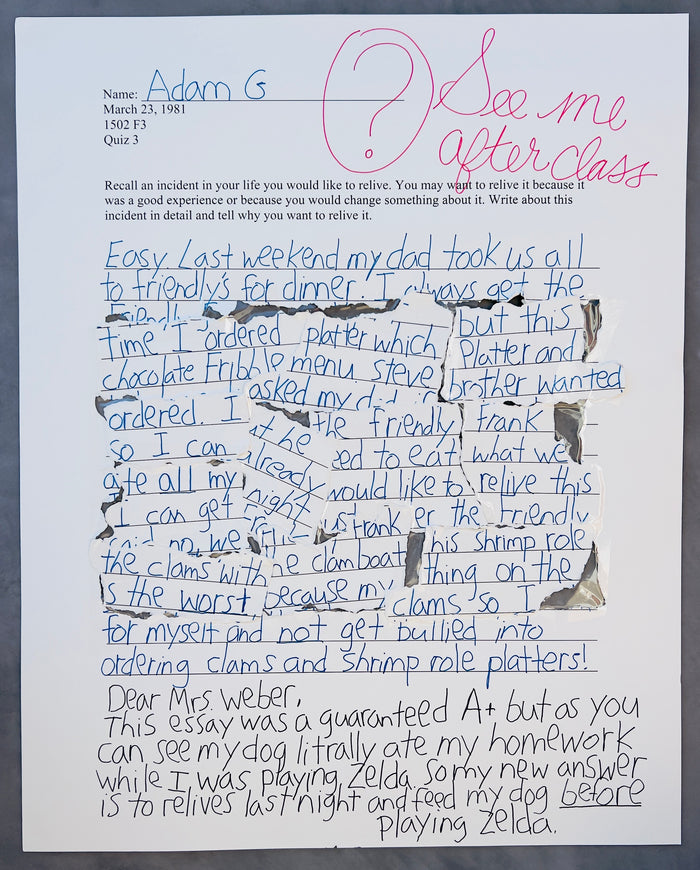 Name: Adam G
See me
after class
?
March 23, 1981
1502 F3
Quiz 3
Recall an incident in your life you would like to relive. You may want to relive it because it
was a good experience or because you would change something about it. Write about this
incident in detail and tell why you want to relive it.
Easy. Last weekend my dad took us all
to friendly's for dinner. I always get the
Friendly
time I ordered platter which but this
chocolate Fribble menu steve Platter and
asked my brother wanted
ordered. I the friendly Frank
so I can at he ed to eat what we
ate all my already would like to relive this
I can get night Frank er the Friendly
said no, we his shrimp role
the clams with he clamboat thing on the
s the worst because my clams so I
for myself and not get bullied into
ordering clams and shrimp role platters!
Dear Mrs. Weber,
This essay was a guaranteed A+ but as you
can see my dog litrally ate my homework
while I was playing Zelda. So my new answer
is to relives last night and feed my dog before
playing Zelda.